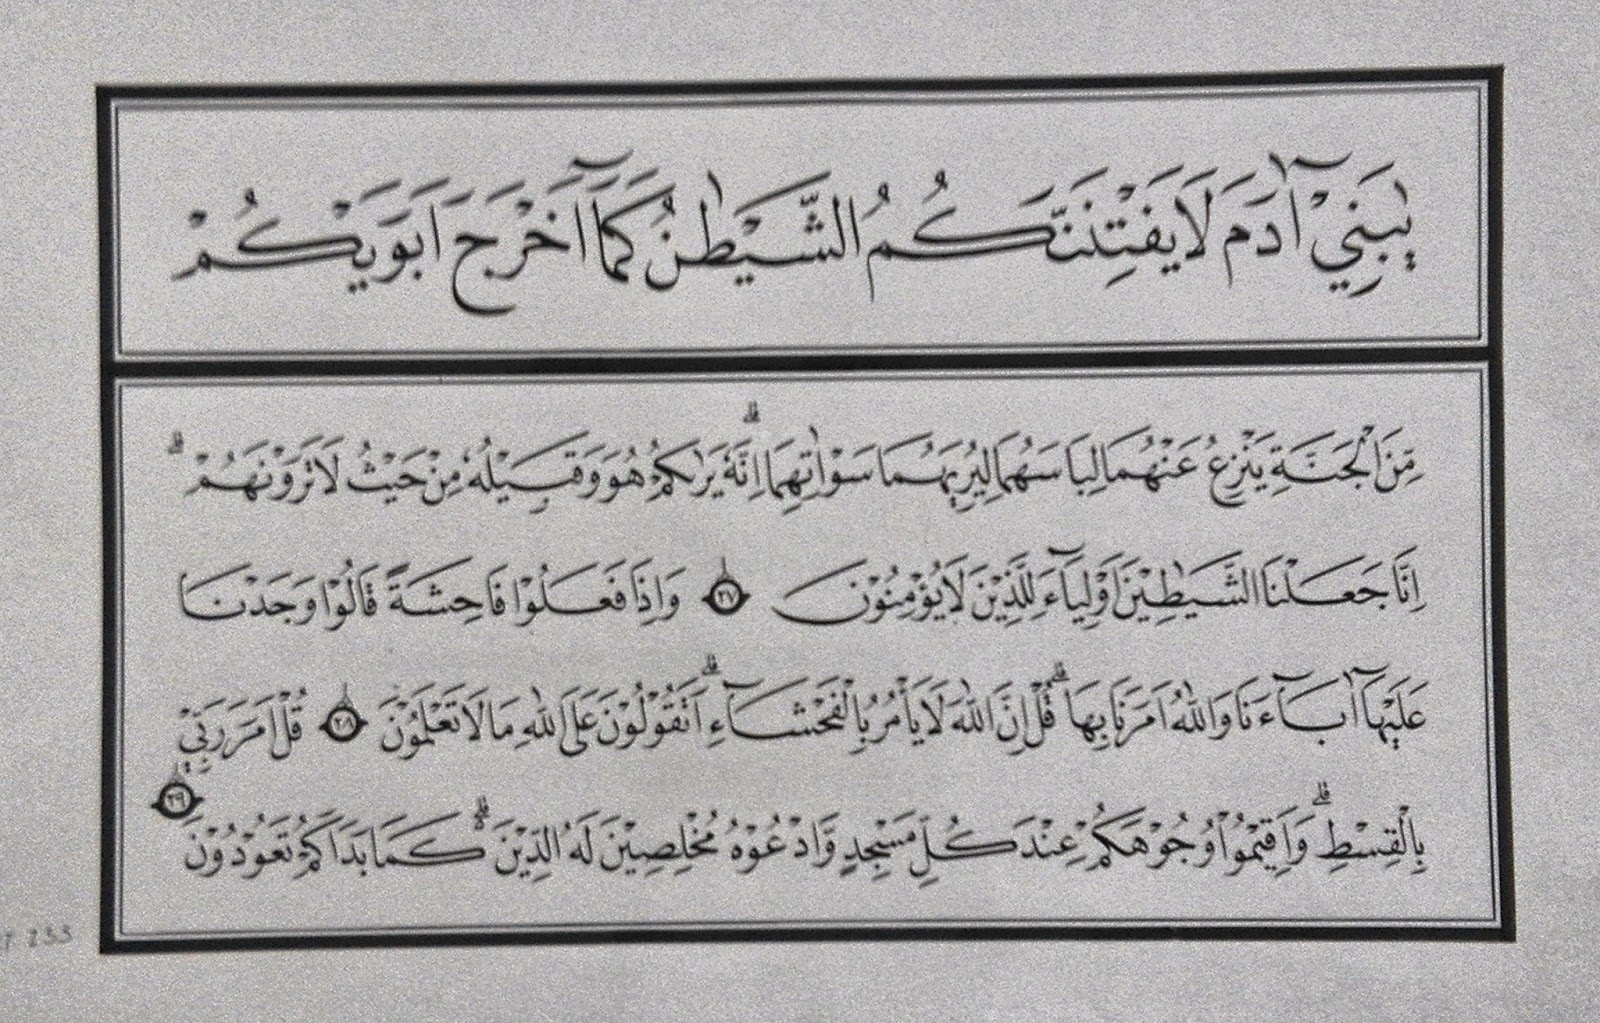 يٰبَنِيْٓ اٰدَمَ لَا يَفْتِنَنَّكُمُ الشَّيْطٰنُ كَمَآ اَخْرَجَ اَبَوَيْكُمْ
مِّنَ الْجَنَّةِ يَنْزِعُ عَنْهُمَا لِبَاسَهُمَا لِيُرِيَهُمَا سَوْاٰتِهِمَا ۗ اِنَّهٗ يَرٰىكُمْ هُوَ وَقَبِيْلُهٗ مِنْ حَيْثُ لَا تَرَوْنَهُمْ ۗ
اِنَّا جَعَلْنَا الشَّيٰطِيْنَ اَوْلِيَآءَ لِلَّذِيْنَ لَا يُؤْمِنُوْنَ ٢٧ وَاِذَا فَعَلُوْا فَاحِشَةً قَالُوْا وَجَدْنَا
عَلَيْهَآ اٰبَآءَنَا وَاللّٰهُ اَمَرَنَا بِهَا ۗ قُلْ اِنَّ اللّٰهَ لَا يَأْمُرُ بِالْفَحْشَآءِ ۗ اَتَقُوْلُوْنَ عَلَى اللّٰهِ مَا لَا تَعْلَمُوْنَ ٢٨ قُلْ اَمَرَ رَبِّيْ
بِالْقِسْطِ ۗ وَاَقِيْمُوْا وُجُوْهَكُمْ عِنْدَ كُلِّ مَسْجِدٍ وَّادْعُوْهُ مُخْلِصِيْنَ لَهُ الدِّيْنَ ۗ كَمَا بَدَاَكُمْ تَعُوْدُوْنَ ٢٩